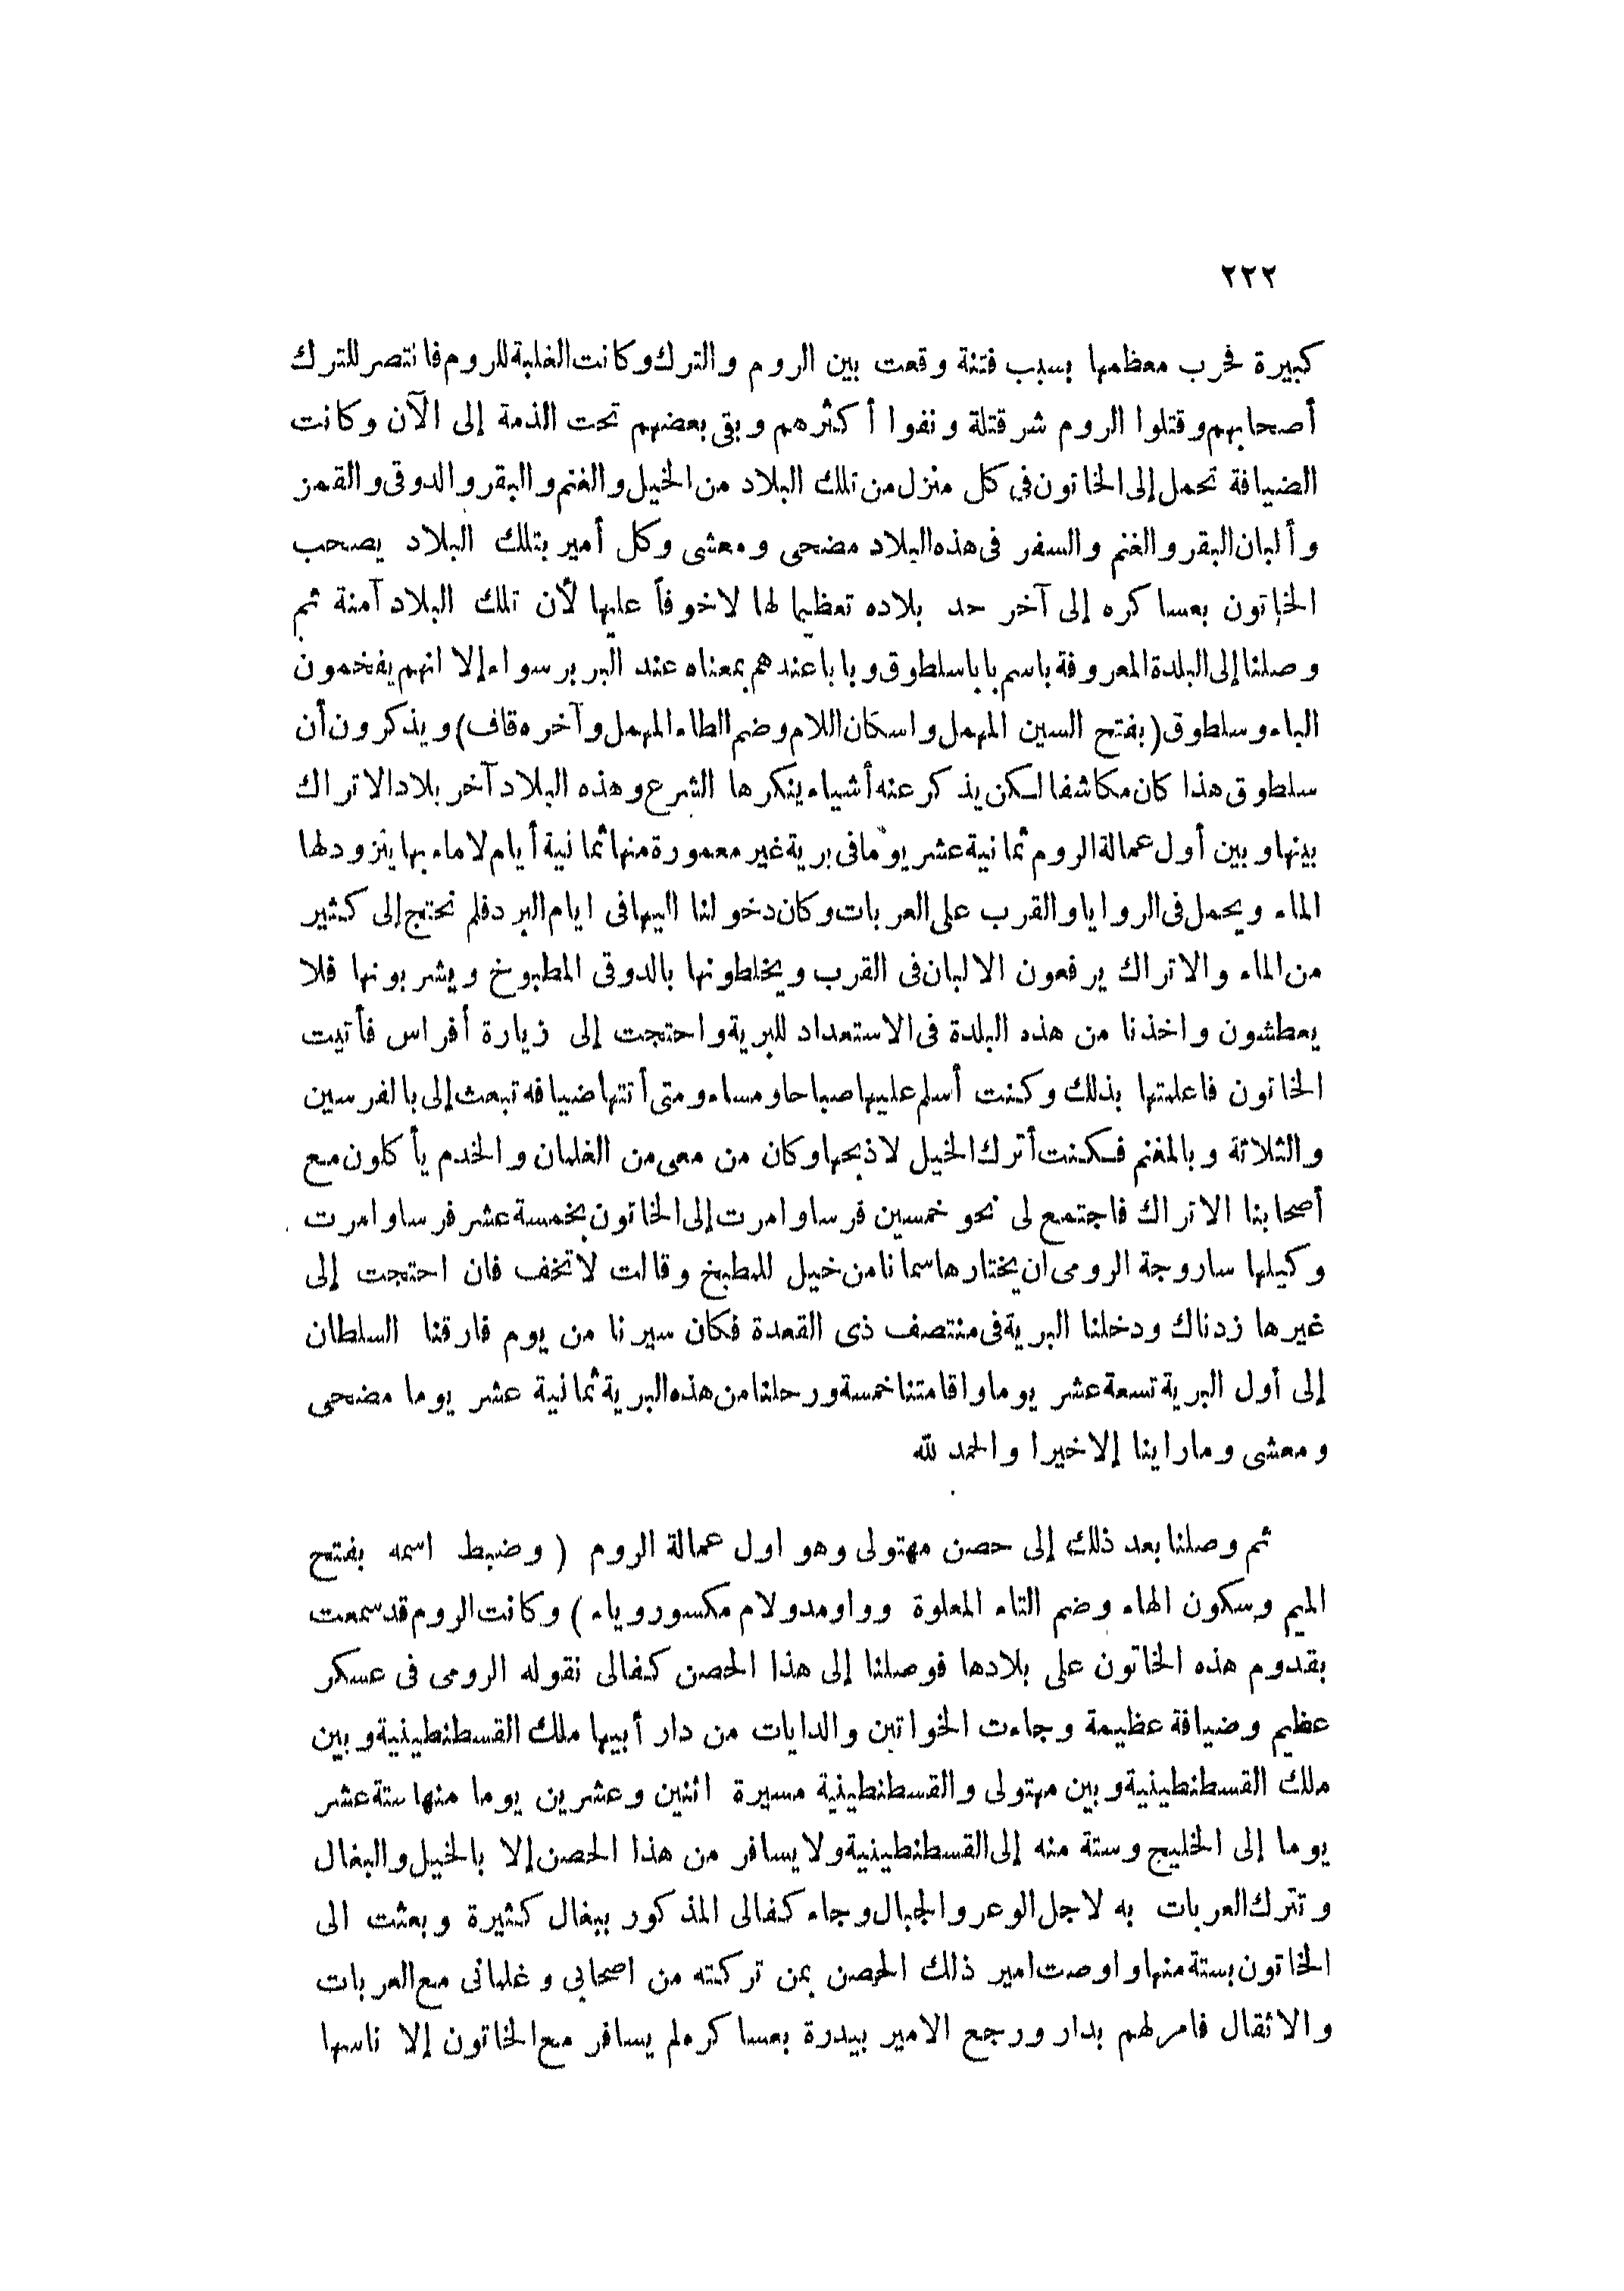 ٢٢٢
كبيرة فخرب معظمها بسبب فتنة وقعت بين الروم والترك وكانت الغلبة للروم فانتصر للترك
أصحابهم وقتلوا الروم شر قتلة ونفوا أكثرهم وبقى بعضهم تحت الذمة إلى الآن وكانت
الضيافة تحمل إلى الخاتون في كل منزل من تلك البلاد من الخيل والغنم والبقر والدوقى والقمز
وألبان البقر والغنم والسفر فى هذه البلاد مضحى ومعشى وكل أمير بتلك البلاد يصحب
الخاتون بعساكره إلى آخر حد بلاده تعظيما لها لاخوفاً عليها لأن تلك البلاد آمنة ثم
وصلنا إلى البلدة المعروفة باسم بابا سلطوق وبابا عندهم بمعناه عند البربر سواء إلا انهم يفخمون
الباء وسلطوق (بفتح السين المهمل واسكان اللام وضم الطاء المهمل وآخره قاف) ويذكرون أن
سلطوق هذا كان مكاشفا لكن يذكر عنه أشياء ينكرها الشرع وهذه البلاد آخر بلاد الاتراك
بينها وبين أول عمالة الروم ثمانية عشر يوما فى برية غير معمورة منها ثمانية أيام لاماء بها يتزود لها
الماء ويحمل فى الروايا والقرب على العربات وكان دخولنا اليها فى ايام البرد فلم نحتج إلى كثير
من الماء والاتراك يرفعون الالبان فى القرب ويخلطونها بالدوقى المطبوخ ويشربونها فلا
يعطشون واخذنا من هذه البلدة فى الاستعداد للبرية واحتجت إلى زيارة أفراس فأتيت
الخاتون فاعلمتها بذلك وكنت أسلم عليها صباحا ومساء ومتى أتتها ضيافه تبعث إلى بالفرسين
والثلاثة وبالمغنم فكنت أترك الخيل لاذبحها وكان من معى من الغلمان والخدم يأكلون مع
أصحابنا الاتراك فاجتمع لى نحو خمسين فرسا وامرت إلى الخاتون بخمسة عشر فرسا وامرت
وكيلها ساروجة الرومى ان يختارها سمانا من خيل للمطبخ وقالت لاتخف فان احتجت إلى
غيرها زدناك ودخلنا البرية فى منتصف ذى القعدة فكان سيرنا من يوم فارقنا السلطان
إلى أول البرية تسعة عشر يوما واقامتنا خمسة ورحلنا من هذه البرية ثمانية عشر يوما مضحى
ومعشى وماراينا إلاخيرا والحمد لله
ثم وصلنا بعد ذلك إلى حصن مهتولى وهو اول عمالة الروم ( وضبط اسمه بفتح
الميم وسكون الهاء وضم التاء المعلوة وواومدولام مكسوروياء ) وكانت الروم قد سمعت
بقدوم هذه الخاتون على بلادها فوصلنا إلى هذا الحصن كفالى نقوله الرومى فى عسكر
عظيم وضيافة عظيمة وجاءت الخواتين والدايات من دار أبيها ملك القسطنطينية وبين
ملك القسطنطينية وبين مهتولى والقسطنطينية مسيرة اثنين وعشرين يوما منها ستة عشر
يوما إلى الخليج وستة منه إلى القسطنطينية ولايسافر من هذا الحصن إلا بالخيل والبغال
وتترك العربات به لاجل الوعر والجبال وجاء كفالى المذكور ببغال كثيرة وبعثت الى
الخاتون بستة منها واوصت امير ذلك الحصن بمن تركته من اصحابى وغلمانى مع العربات
والاثقال فامر لهم بدار ورجع الامير بيدرة بعساكره لم يسافر مع الخاتون إلا ناسها